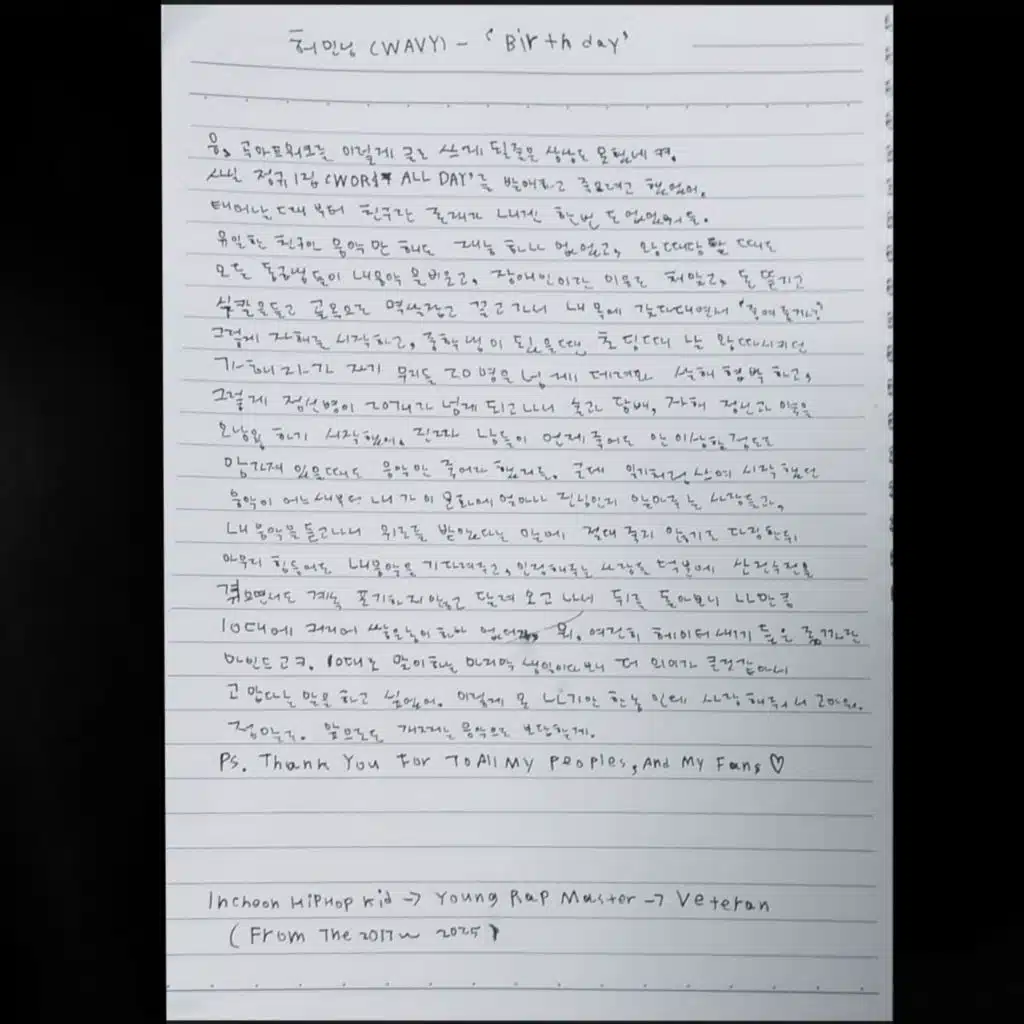 허민닝 (WAVY) - 'Birthday'
음, 곡마프워크를 이렇게 글로 쓰게 될줄은 상상도 못했네
사실 정규 1집 'WORST ALL DAY'를 발매하고 죽으려고 했었어.
태어날때부터 친구란 존재가 내겐 한번도 없었거든.
유일한 친구인 음악만 해도 재능 하나 없었고, 왕따당할 때도
모든 동급생들이 내음악을 비웃고, 장애인이란 이유로 처맞고, 돈 뜯기고
식칼을들고 골목으로 멱살잡고 끌고가서 내 목에 갖다대면서
그렇게 자해를 시작하고, 중학생이 되었을땐, 초딩때 날 왕따시키던
가해자가 자기 무리들 20명을 넘게 데려와 살해협박하고,
그렇게 정신병이 20개가 넘게 되고나서 술과 담배, 자해 정신과 약을
오남용 하기 시작했어. 진짜 남들이 언제 죽어도 안 이상할정도로
망가져 있을때도 음악만 죽어라 했거든. 근데 일기처럼 쓰며 시작했던
음악이 어느새부터 내가 이 문화에 얼마나 진심인지 알아주는 사람들과,
내 음악을 듣고나서 위로를 받았다는 말에 절대 죽지 않기로 다짐한뒤
아무리 힘들어도 내음악을 기다려주고, 인정해주는 사람들 덕분에 산전수전을
겪으면서도 계속 포기하지않고 달려 오고 나서 뒤를 돌아보니 나만큼
10대에 커리어 쌓은놈이 하나 없더라. 뭐, 여전히 헤이터새끼들은 좆까란
마인드고ㅋ. 10대로 맞이하는 마지막 생일이다보니 더 의미가 큰것같아서
고맙다는 말을 하고 싶었어. 이렇게 못난 한놈인데 사랑해줘서 고마워.
정말루. 앞으로도 개쩌는 음악으로 보답할게.
Ps. Thank You For To All My Peoples, And My Fans ♡
Incheon HipHop kid -> Young Rap Master -> Veteran
(From The 2017 ~ 2025)